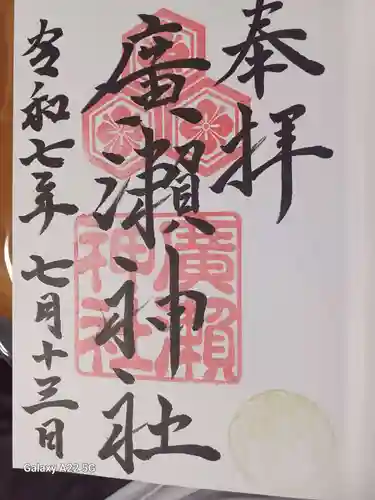 奉拝
廣瀬神社
廣瀬
神社
令和七年 七月十三日
Galaxy A22 5G